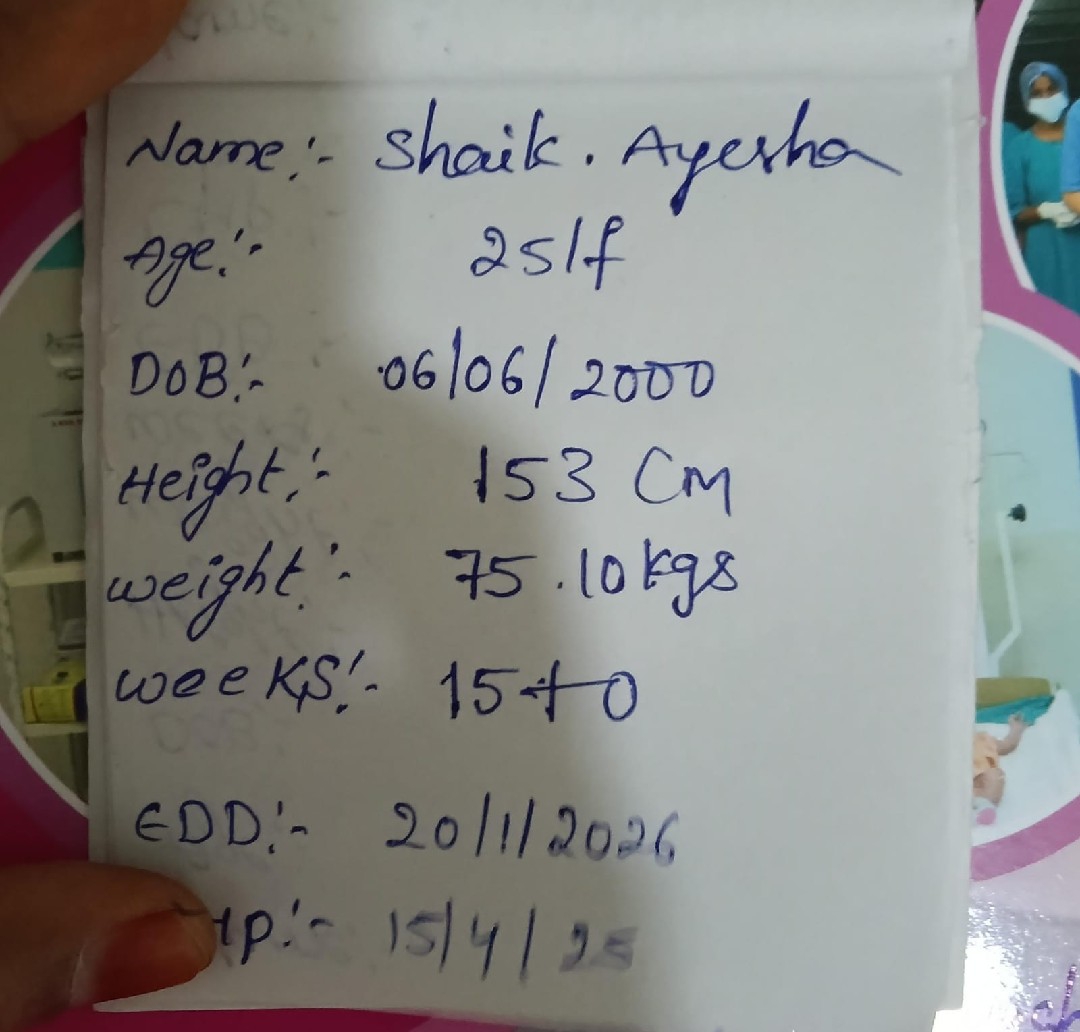 Name:- Shaik. Ayesha
Age:- 25/f
DOB:- 06/06/2000
Height:- 153 CM
weight:- 75.10kgs
weeKS:- 15+0
EDD:- 20/1/2026
MP:- 15/4/25